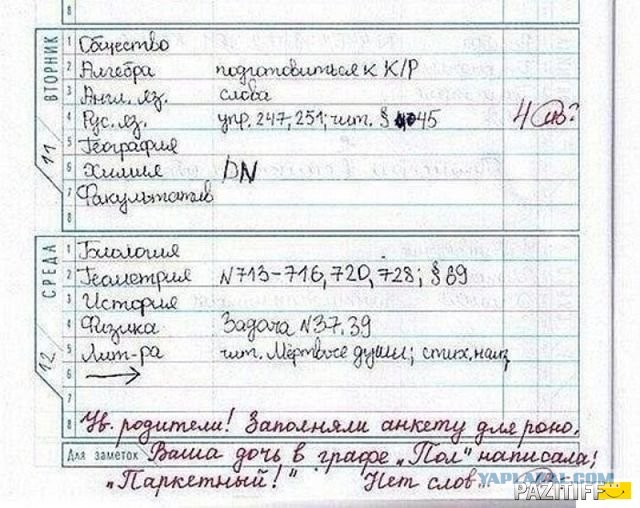 ВТОРНИК
11
1 Общество
2 Алгебра подготовиться к К/Р
3 Англ. яз. слова
4 Рус. яз. упр. 247, 251; чит. § 45 4
5 География
6 Химия
7 Факультатив
8
СРЕДА
12
1 Биология
2 Геометрия N713-716, 720, 728; § 89
3 История
4 Физика Задача N37, 39
5 Лит-ра чит. Мёртвые души; стих. наиз
6 →
7
8 Ув. родители! Заполняли анкету для роно.
Для заметок Ваша дочь в графе „Пол" написала:
„Паркетный!" Нет слов...
YAPLAKAL.COM
PAZITIFF